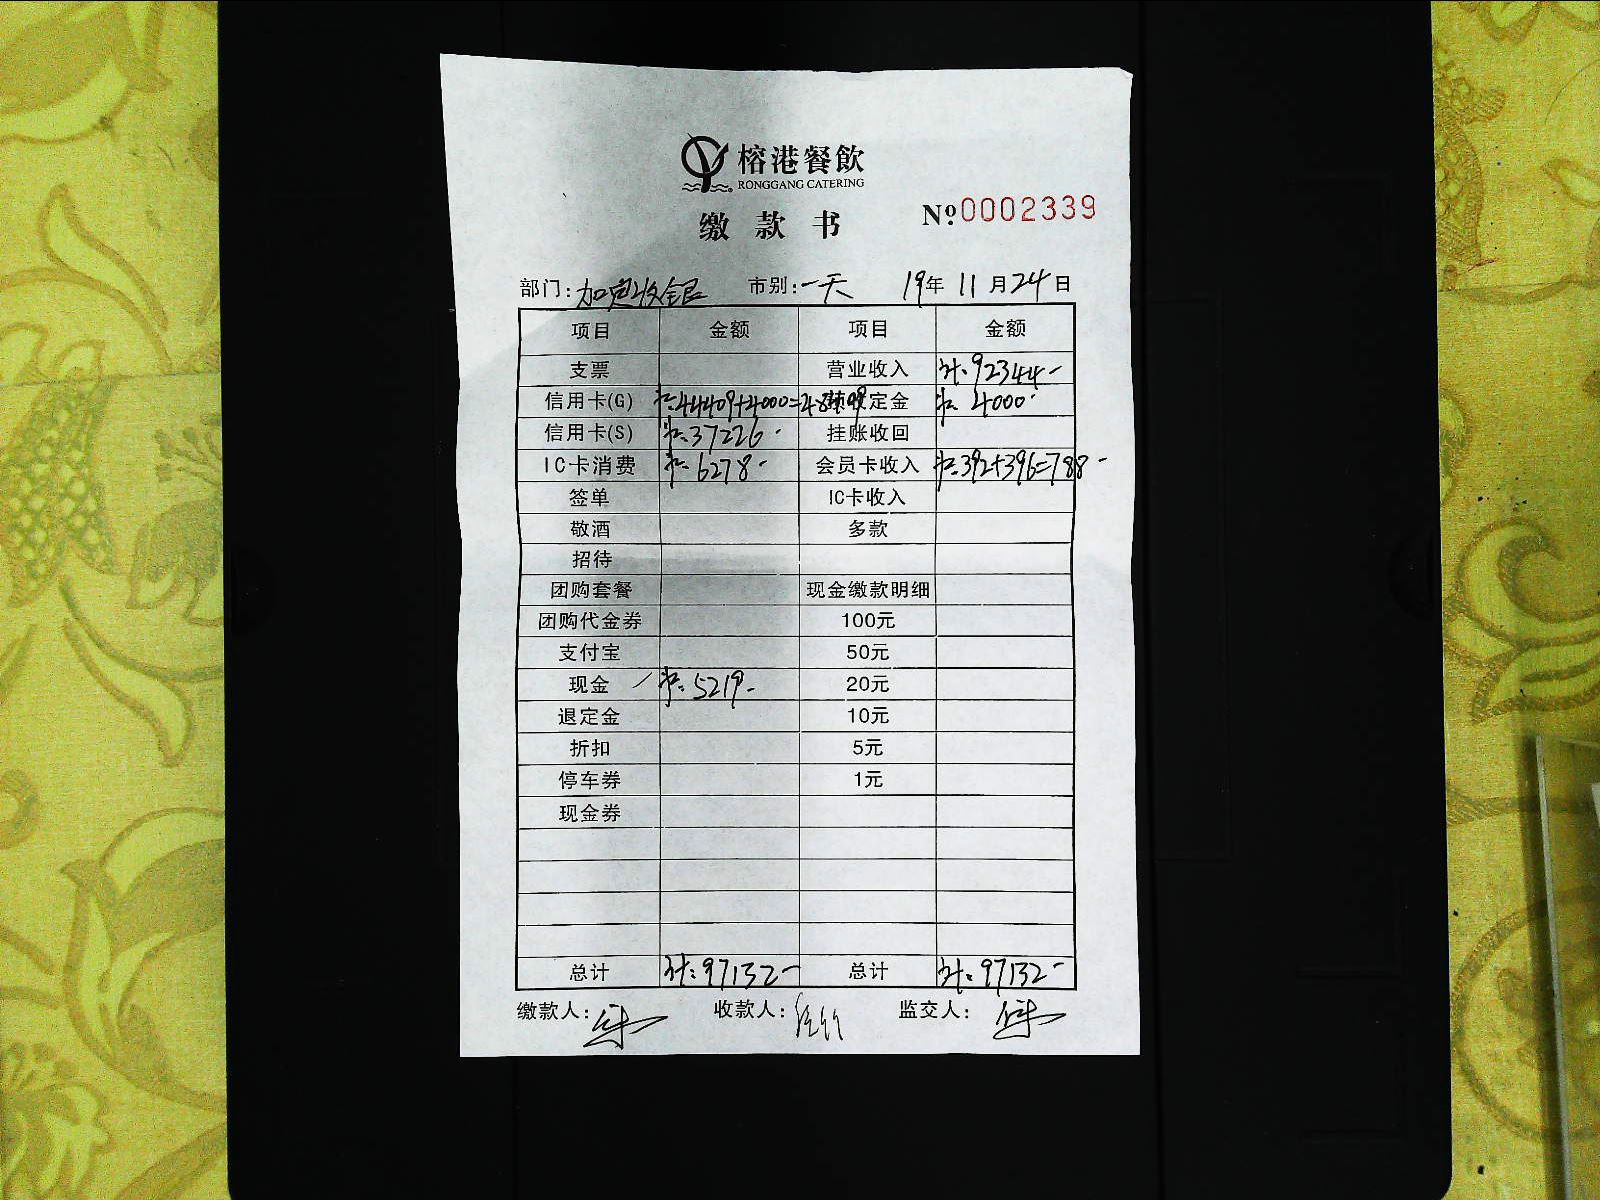 榕港餐飲
RONGGANG CATERING
缴款书 №0002339
部门: 加定收银 市别: 一天 19年 11月 24日
项目 金额 项目 金额
支票 营业收入 计:92344-
信用卡(G) 卡:44409+4000=48409 预收定金 卡:4000-
信用卡(S) 卡:37226- 挂账收回
IC卡消费 卡:6278- 会员卡收入 卡:392+396=788-
签单 IC卡收入
敬酒 多款
招待
团购套餐 现金缴款明细
团购代金券 100元
支付宝 50元
现金 卡:5219- 20元
退定金 10元
折扣 5元
停车券 1元
现金券
总计 计:97132- 总计 计:97132-
缴款人: 收款人: 监交人: